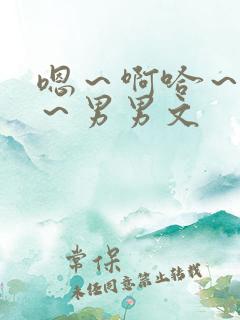 嗯～啊哈～
～男男文
常保
未经同意禁止转载